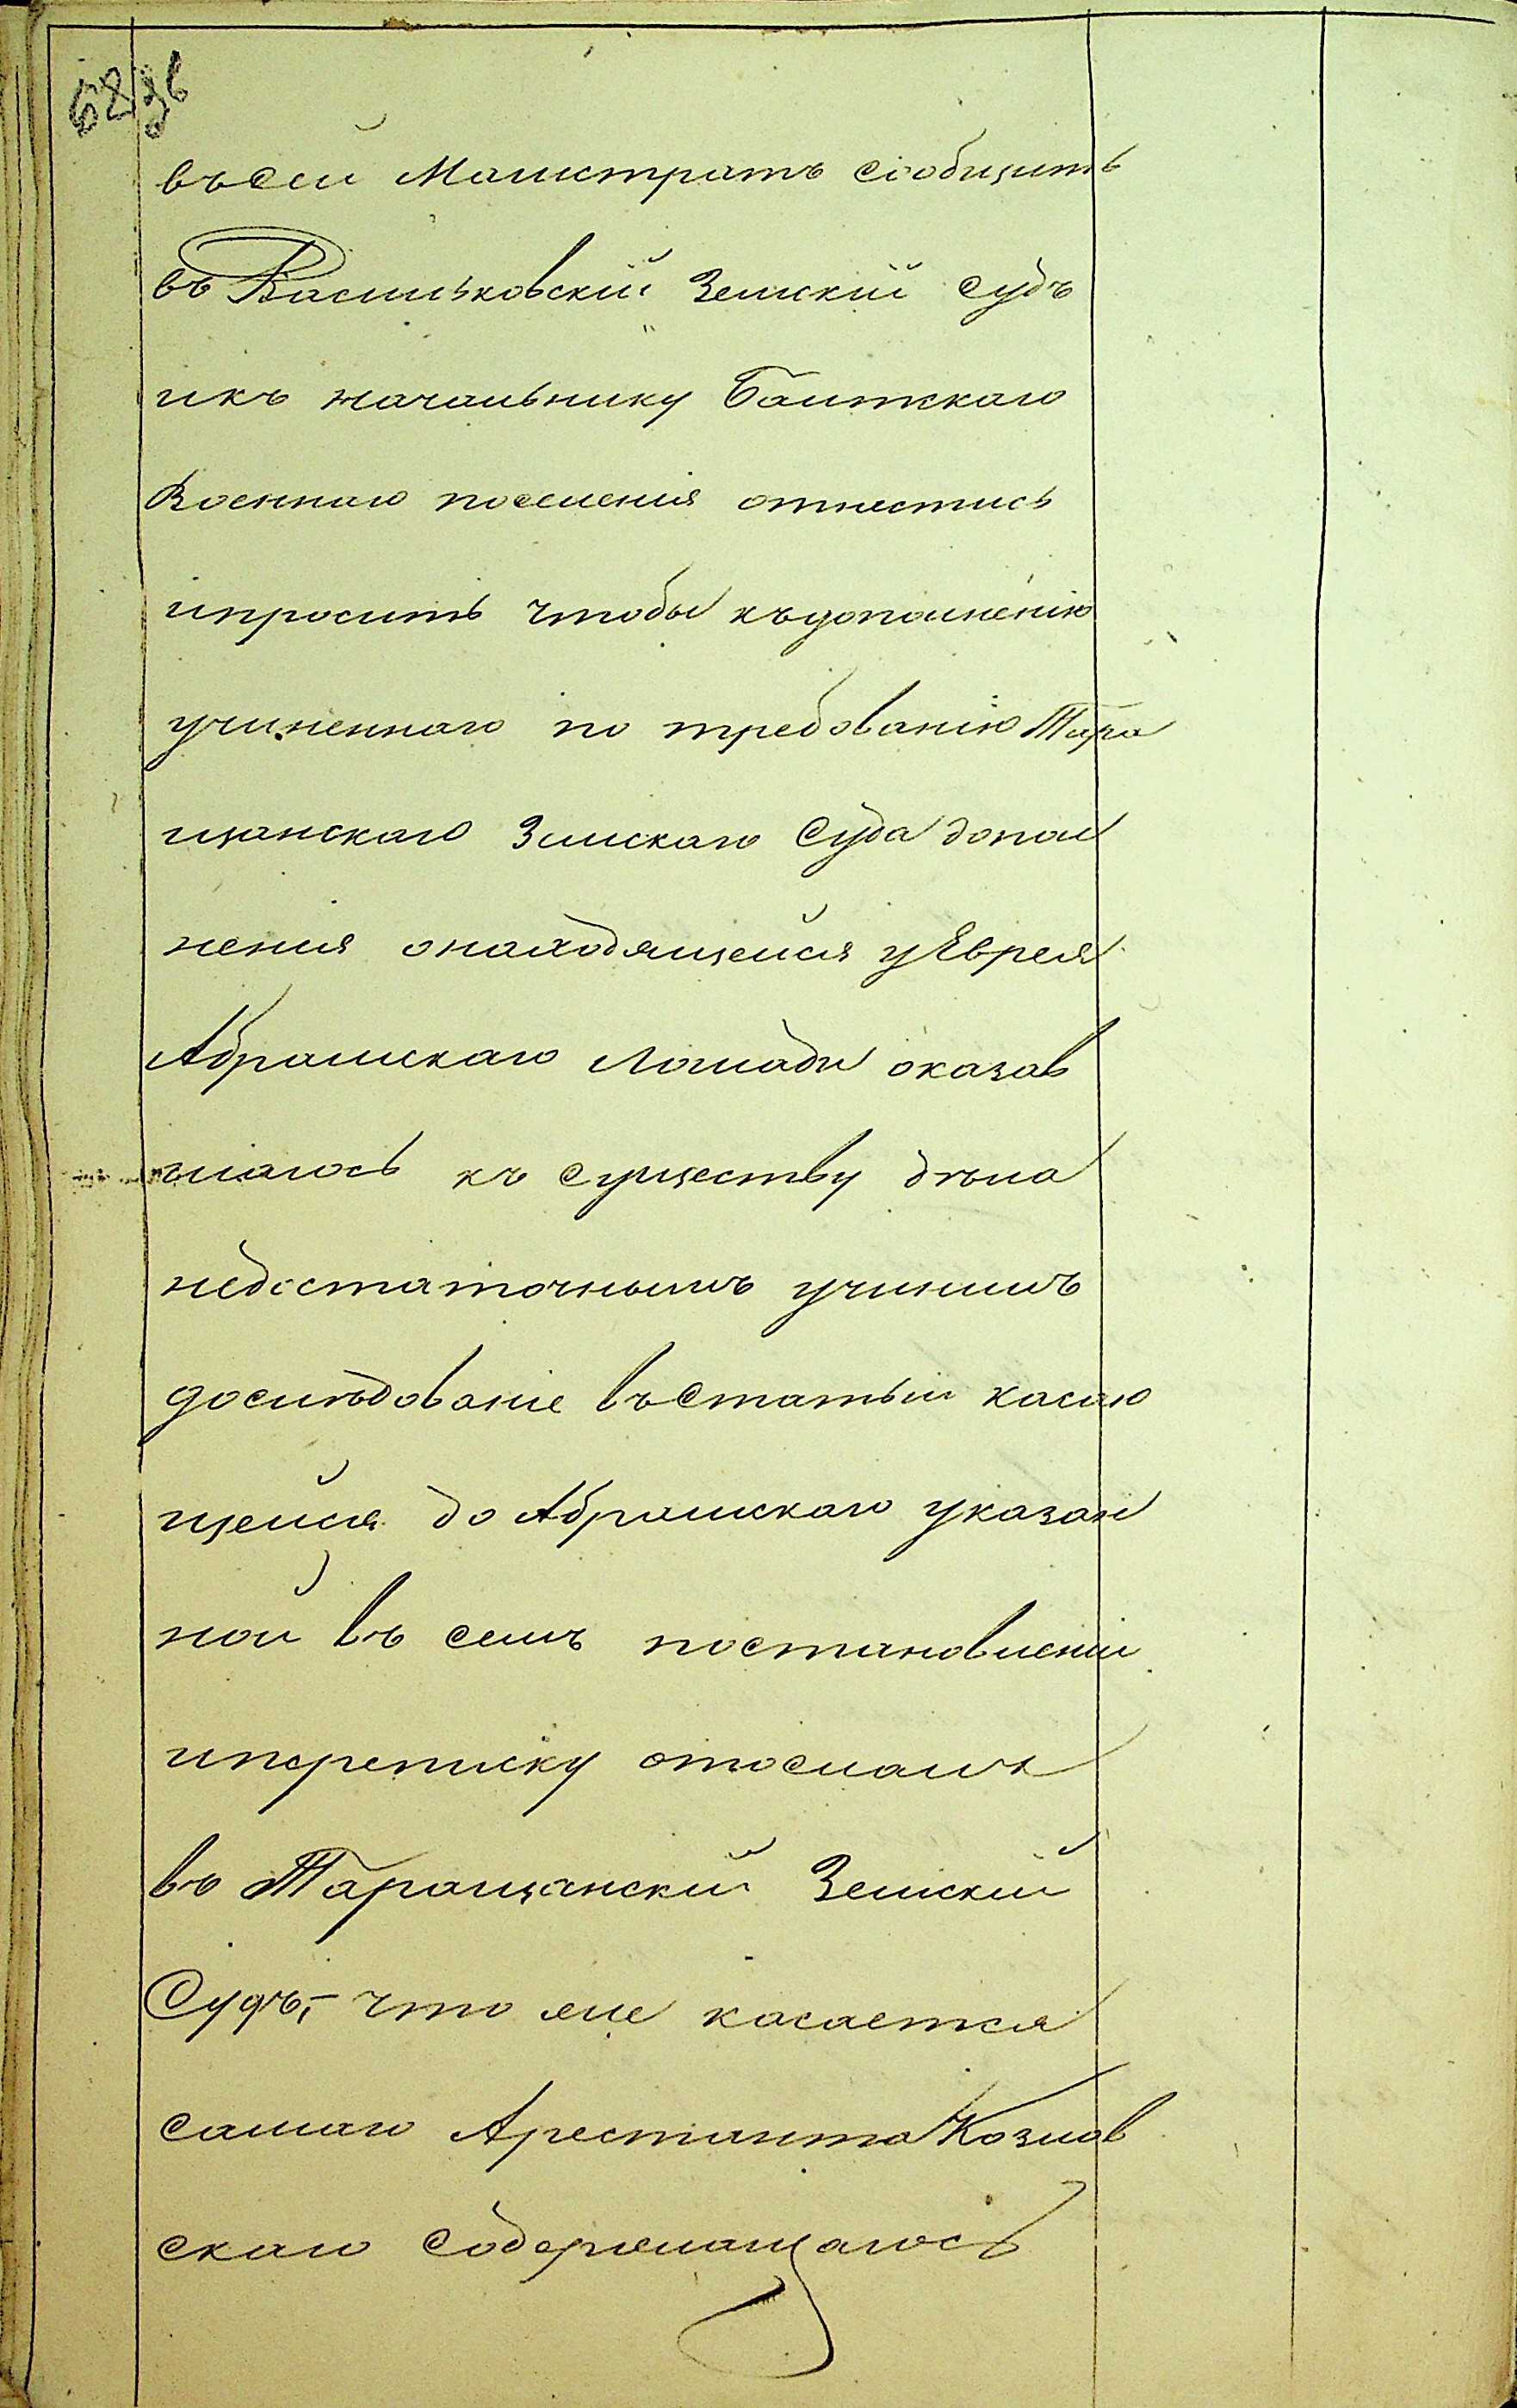 въсей Магистратъ сообщить
въ Васильковскій Земскій судъ
икъ начальнику Балтскаго
Военнаго поселенія отнестись
ипросить чтобы къдополненію
учиненнаго по требованію Тара
щанскаго Земскаго Суда допол
ненія онаходящейся уЕврея
Абрамскаго лошади оказав
шагось къ существу дѣла
недостаточнымъ учинить
дослѣдованіе въСтатьи касаю
щейся до Абрамскаго указан
ной въ семъ постановленіи
ипереписку отослать
въ Таращанскій Земскій
Судъ,- что же касается
самаго Арестанта Козлов
скаго содержащагось